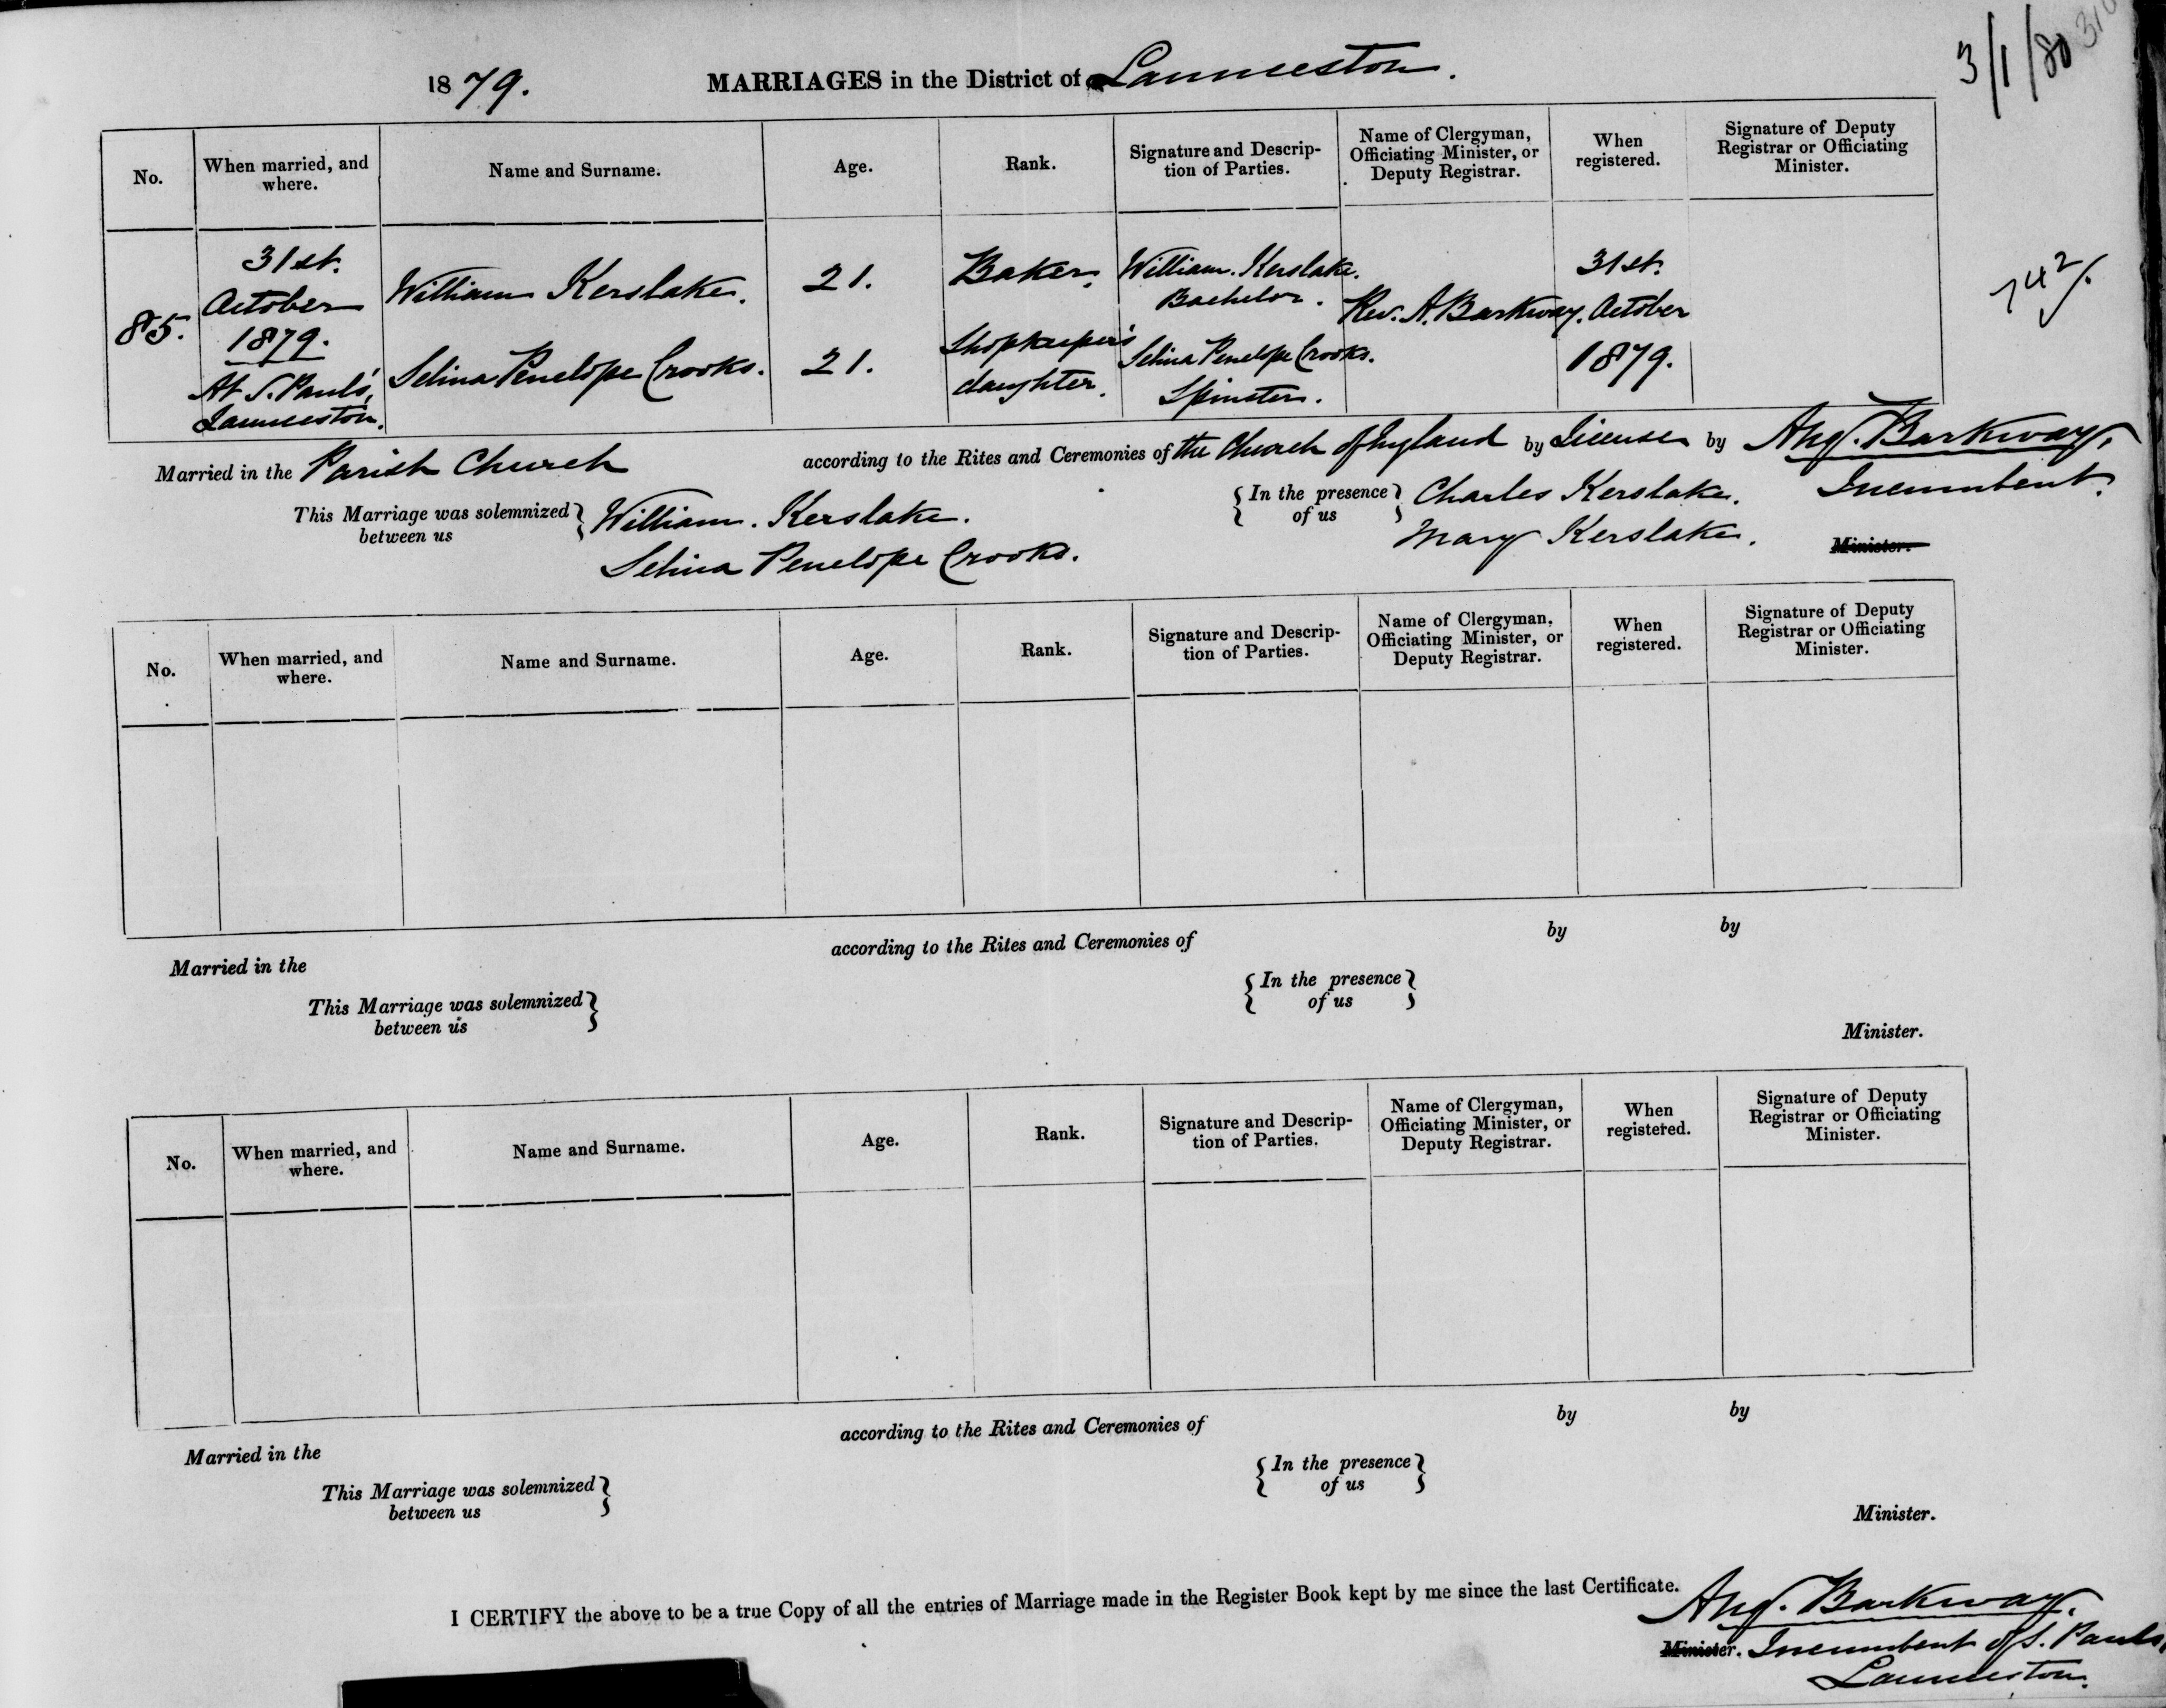 3/1/80
1879. MARRIAGES in the District of Launceston.
No. When married, and where. Name and Surname. Age. Rank. Signature and Description of Parties. Name of Clergyman, Officiating Minister, or Deputy Registrar. When registered. Signature of Deputy Registrar or Officiating Minister.
85.
31st.
October
1879.
At S. Paul's,
Launceston.
William Kerslake.
Selina Penelope Crooks.
21.
21.
Baker.
Shopkeeper's
daughter.
William. Kerslake.
Bachelor.
Selina Penelope Crooks.
Spinster.
Rev. A. Barkway.
31st.
October
1879.
742/.
Married in the Parish Church according to the Rites and Ceremonies of the Church of England by License by Aug. Barkway.
Incumbent.
Minister.
This Marriage was solemnized between us
William. Kerslake.
Selina Penelope Crooks.
In the presence of us
Charles Kerslake.
Mary Kerslake.
No. When married, and where. Name and Surname. Age. Rank. Signature and Description of Parties. Name of Clergyman, Officiating Minister, or Deputy Registrar. When registered. Signature of Deputy Registrar or Officiating Minister.
Married in the according to the Rites and Ceremonies of by by
This Marriage was solemnized between us
In the presence of us
Minister.
No. When married, and where. Name and Surname. Age. Rank. Signature and Description of Parties. Name of Clergyman, Officiating Minister, or Deputy Registrar. When registered. Signature of Deputy Registrar or Officiating Minister.
Married in the according to the Rites and Ceremonies of by by
This Marriage was solemnized between us
In the presence of us
Minister.
I CERTIFY the above to be a true Copy of all the entries of Marriage made in the Register Book kept by me since the last Certificate.
Aug. Barkway.
Minister. Incumbent of S. Paul's,
Launceston.